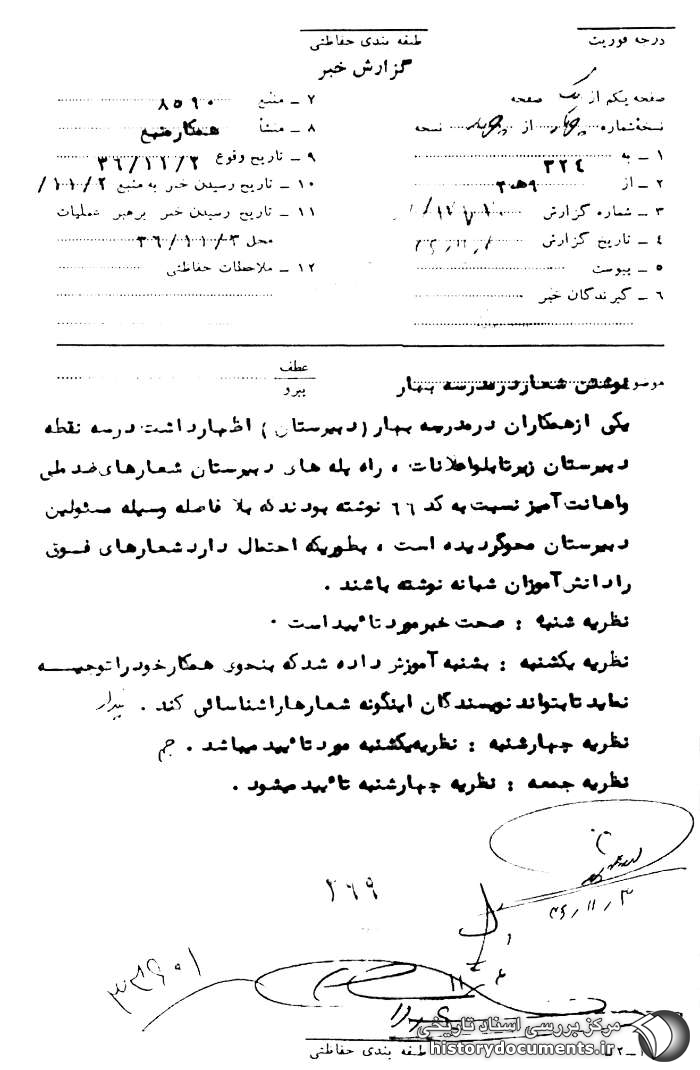 درجه فوریت
طبقه بندی حفاظتی
گزارش خبر
صفحه یکم از یک صفحه
نسخه شماره از نسخه
۱ ـ به ۳۲۴
۲ ـ از ۹هـ۳۰
۳ ـ شماره گزارش
۴ ـ تاریخ گزارش
۵ ـ پیوست
۶ ـ گیرندگان خبر
۷ ـ منبع ۸۵۹۰
۸ ـ منشأ همکار منبع
۹ ـ تاریخ وقوع ۳۶/۱۱/۲
۱۰ ـ تاریخ رسیدن خبر به منبع ۱۱/۲/
۱۱ ـ تاریخ رسیدن خبر برهبر عملیات
محل ۳۶/۱۱/۳
۱۲ ـ ملاحظات حفاظتی
موضوع نوشتن شعار در مدرسه بهار
عطف
پیرو
یکی از همکاران در مدرسه بهار (دبیرستان) اظهار داشت در سه نقطه
دبیرستان زیر تابلو اعلانات ، راه پله های دبیرستان شعارهای ضد ملی
و اهانت آمیز نسبت به کد ۶۶ نوشته بودند که بلا فاصله وسیله مسئولین
دبیرستان محو گردیده است ، بطوریکه احتمال دارد شعارهای فوق
را دانش آموزان شبانه نوشته باشند .
نظریه شنبه : صحت خبر مورد تائید است .
نظریه یکشنبه : بشنبه آموزش داده شد که بنحوی همکار خود را توجیه
نماید تا بتواند نویسندگان اینگونه شعارها را شناسائی کند .
نظریه چهارشنبه : نظریه یکشنبه مورد تائید میباشد .
نظریه جمعه : نظریه چهارشنبه تائید میشود .
۳۶/۱۱/۳
۲۶۹
۳۴۶۰۱
طبقه بندی حفاظتی
مرکز بررسی اسناد تاریخی
historydocuments.ir